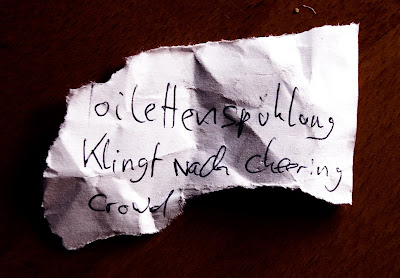 Toilettenspühlung
Klingt nach cheering
crowd